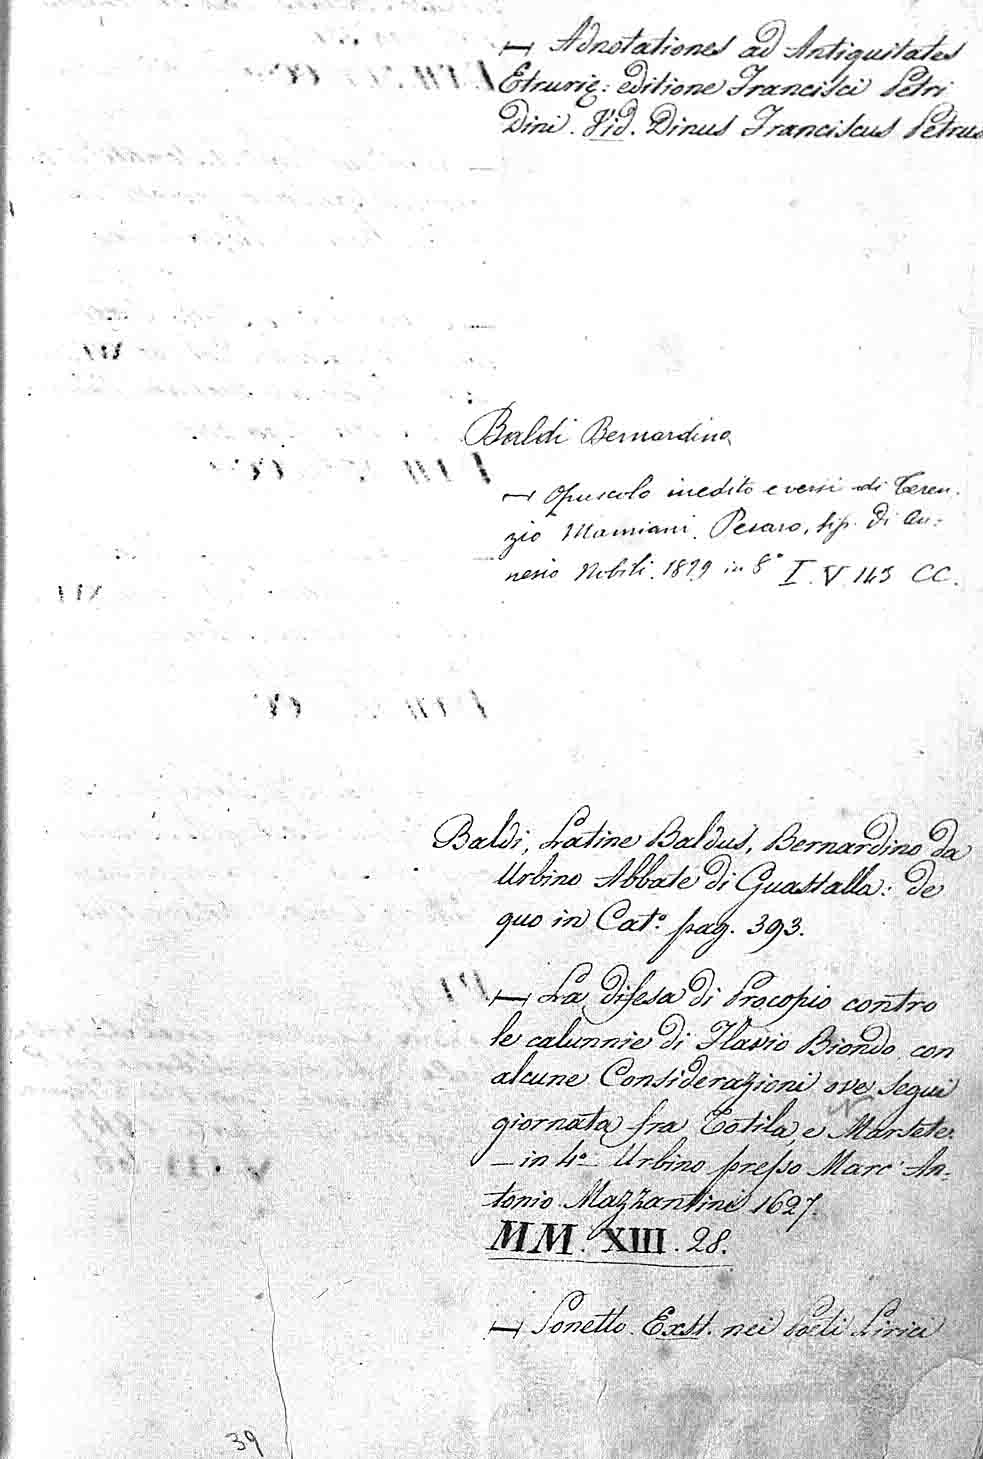 — Adnotationes ad Antiquitates
Etrurię: editione Francisci Petri
Dini. Vid. Dinus Franciscus Petrus
Baldi Bernardino
— Opuscolo inedito e versi di Teren-
zio Mamiani. Pesaro, tip. di An-
nesio Nobili. 1829 in 8° I. V. 145 CC.
Baldi, Latine Baldus, Bernardino da
Urbino Abbate di Guastalla: de
quo in Cat.° pag. 393.
— La difesa di Procopio contro
le calunnie di Flavio Biondo con
alcune Considerazioni ove segui
giornata fra Totila, e Marsete.
— in 4.° Urbino presso Marc' An-
tonio Mazzantini 1627.
MM. XIII. 28.
— Sonetto. Exst. nei Poeti Lirici
39